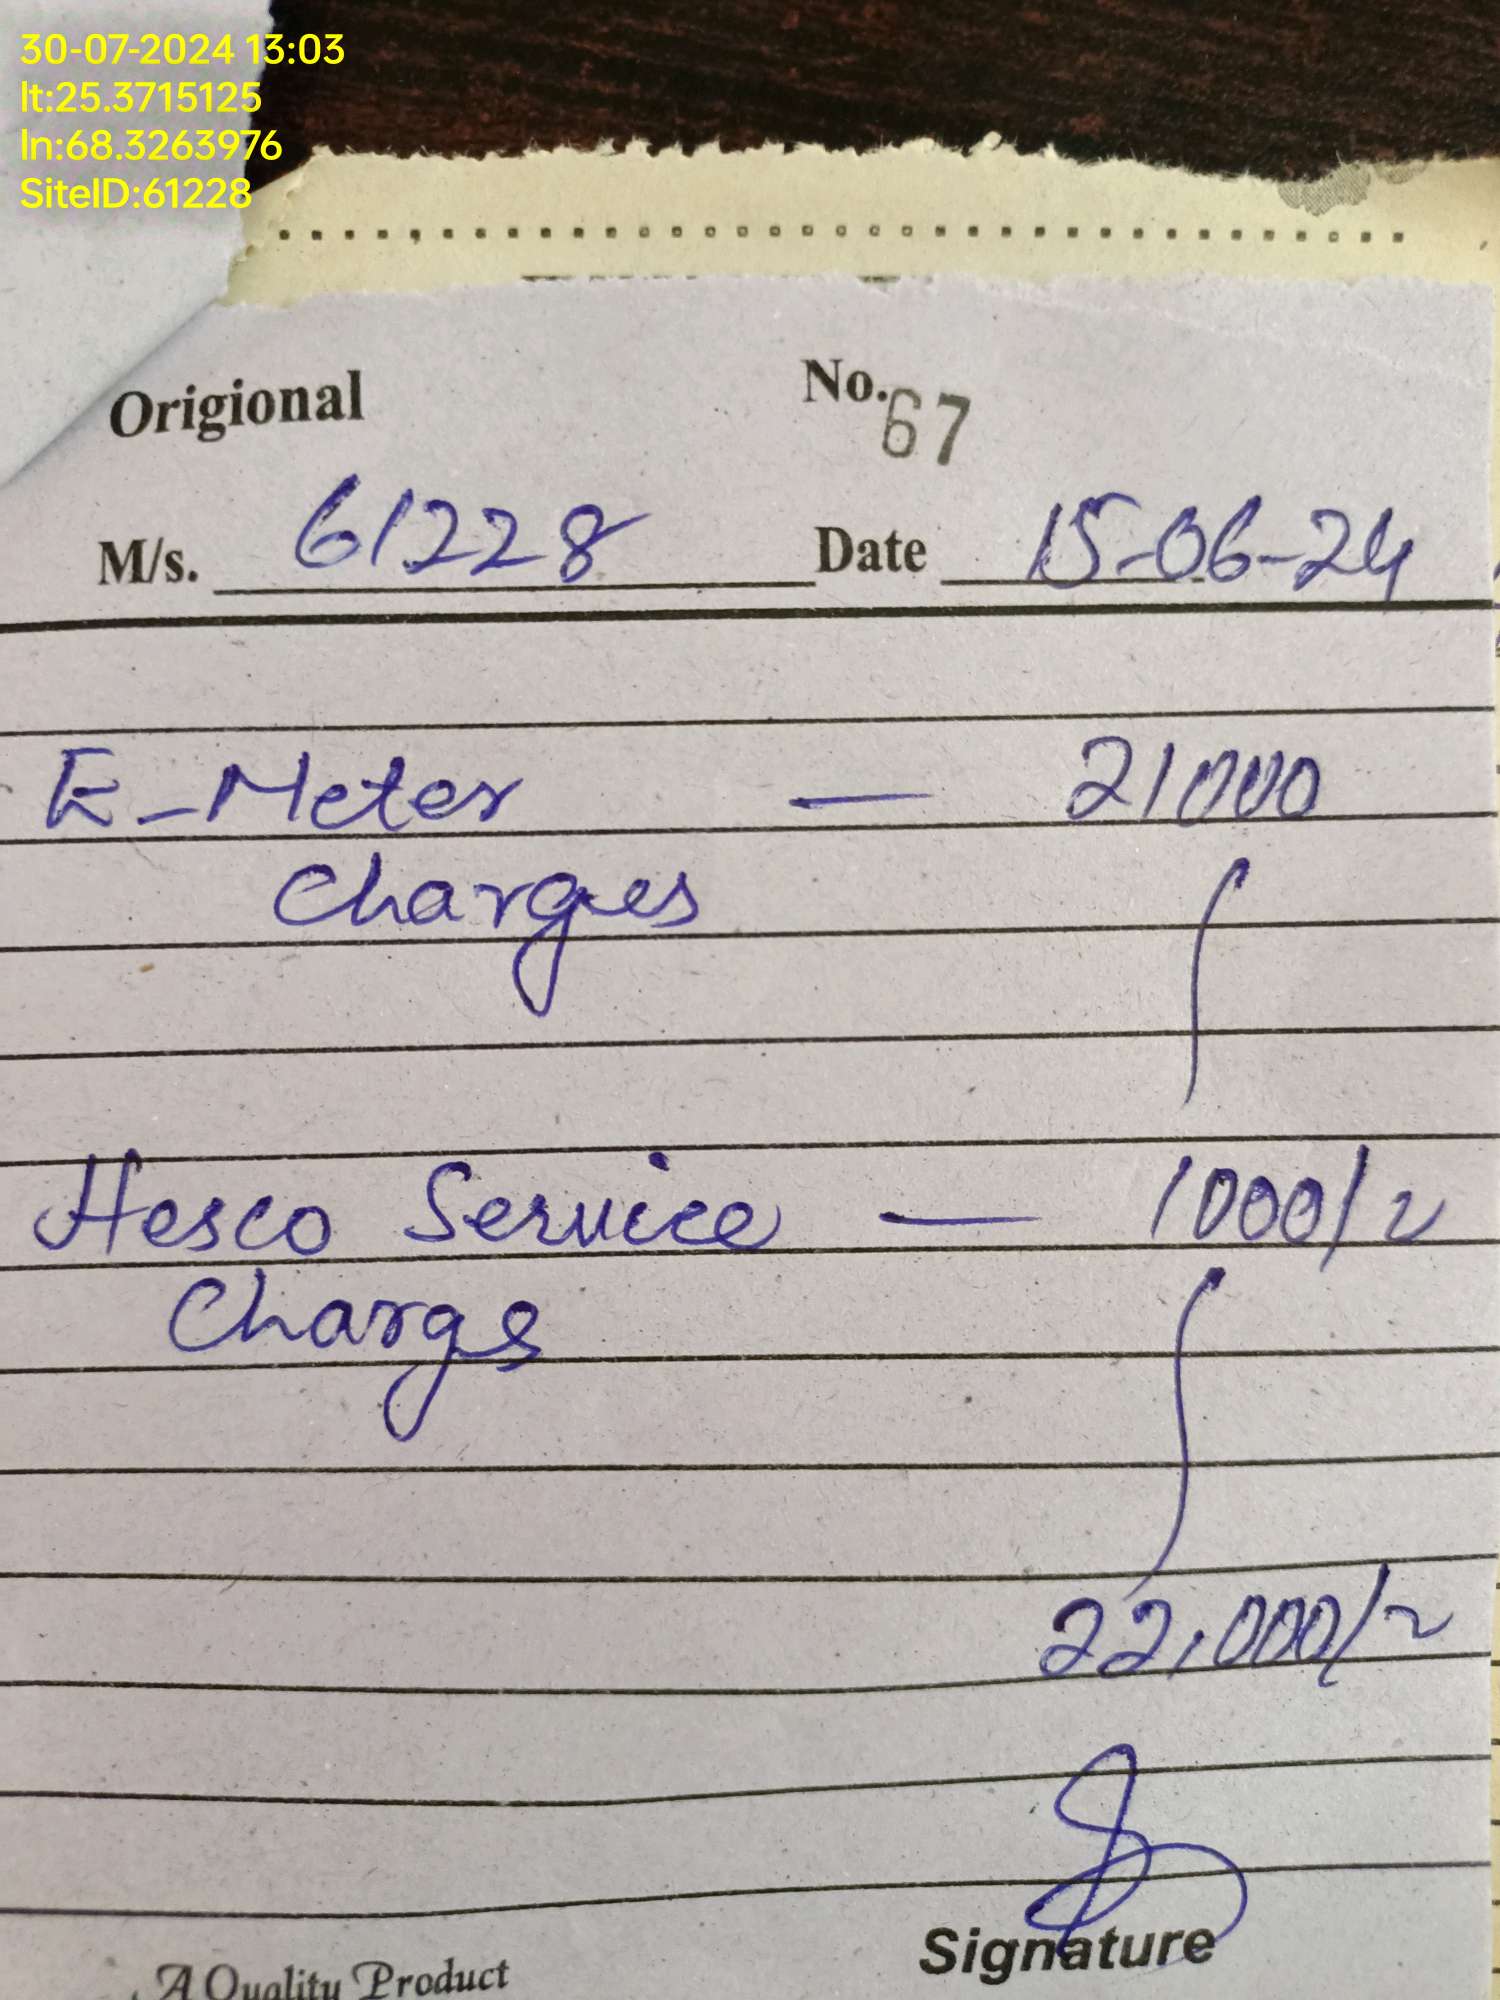 30-07-2024 13:03
lt:25.3715125
ln:68.3263976
SiteID:61228
Origional No. 67
M/s. 61228 Date 15-06-24
E-Meter — 21000
Charges
Hesco Service — 1000/=
Charges
22,000/=
Signature
A Quality Product